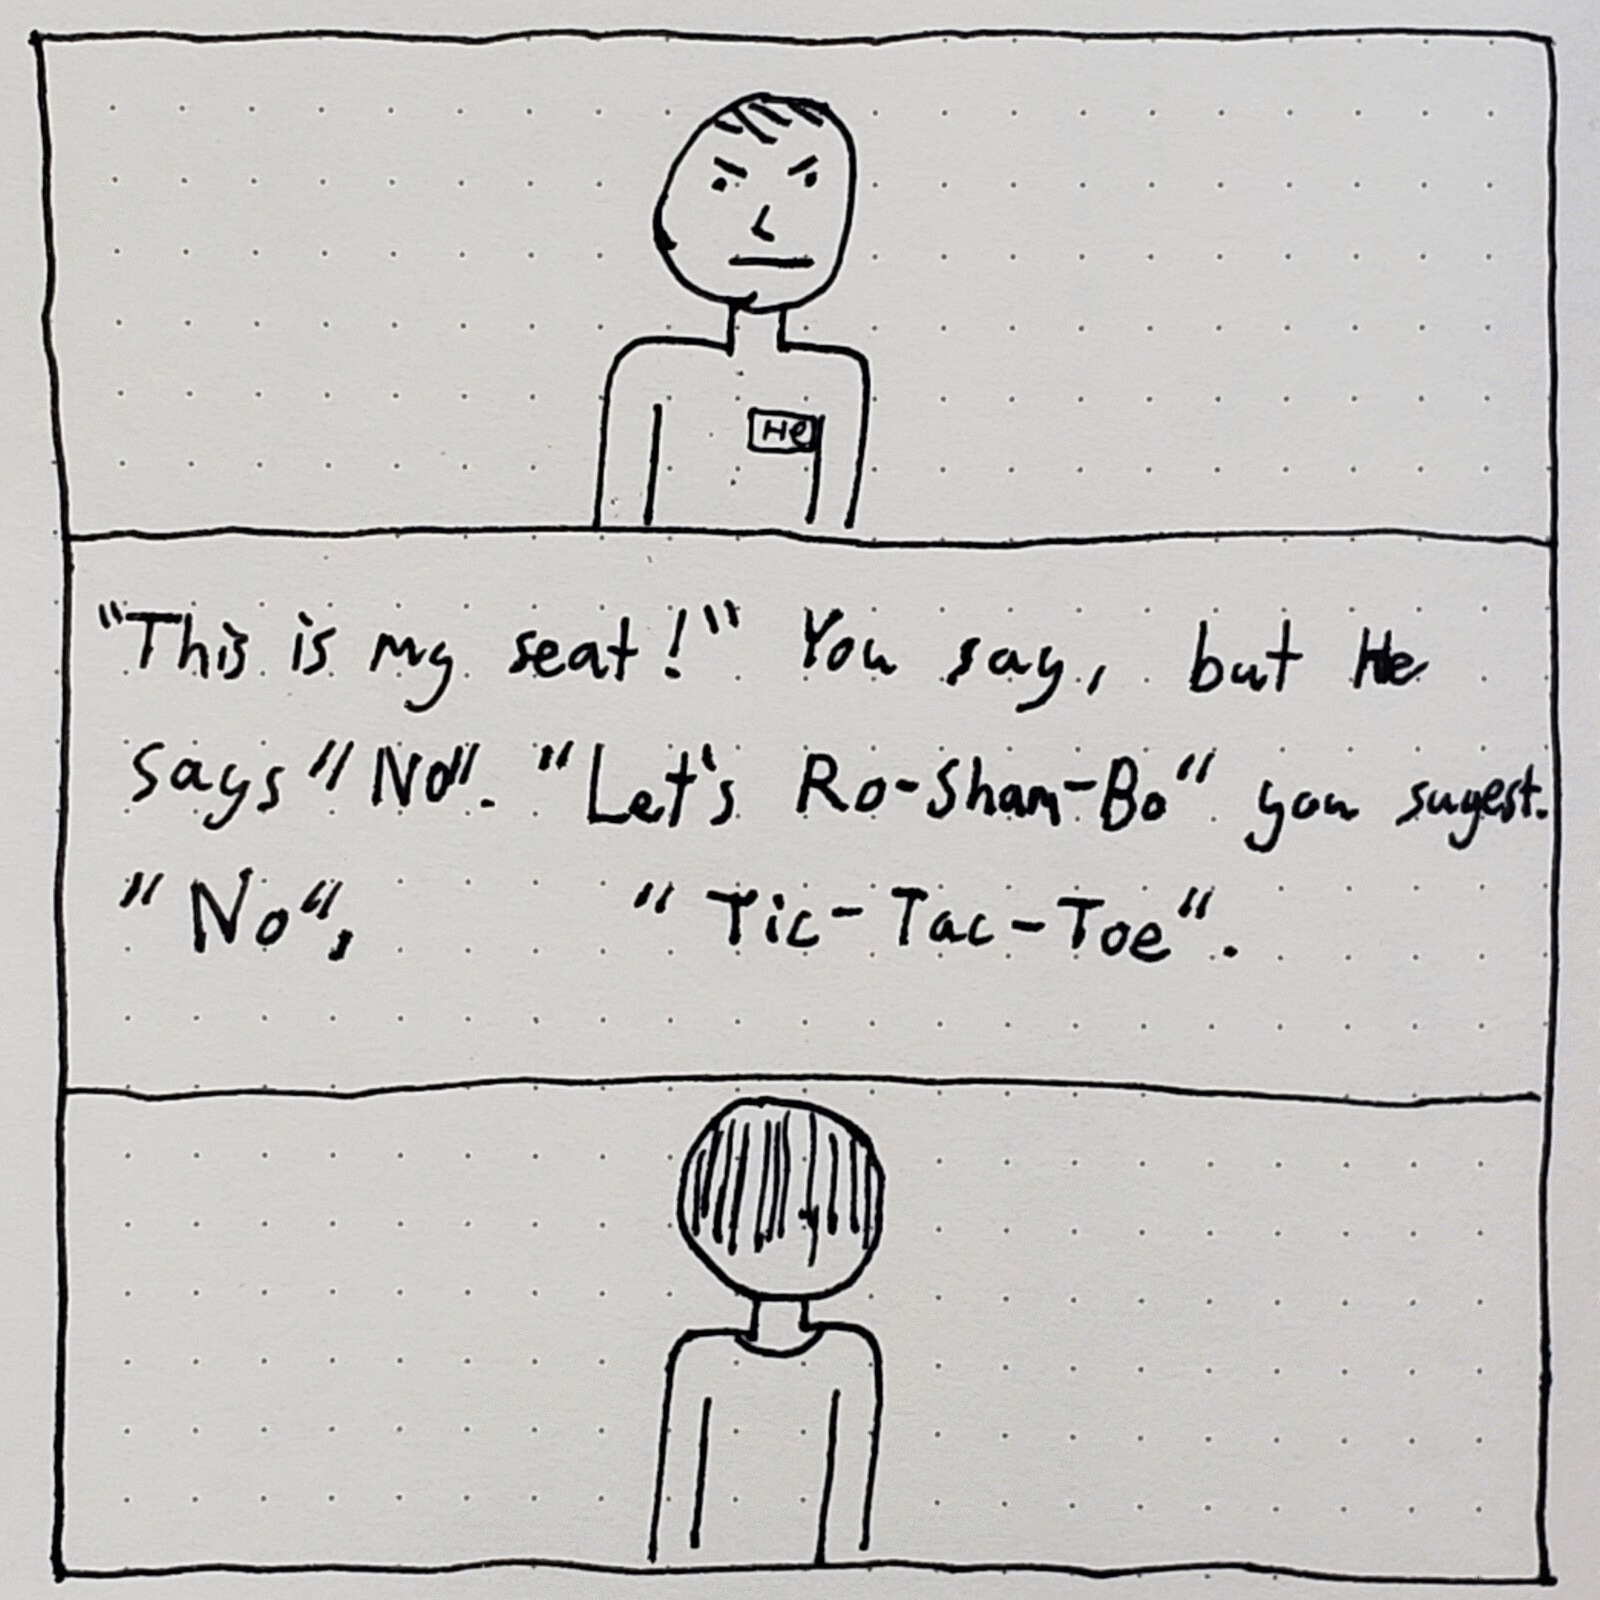 He
"This is my seat!" You say, but He
says "No". "Let's Ro-Sham-Bo" you sugest.
"No", "Tic-Tac-Toe".